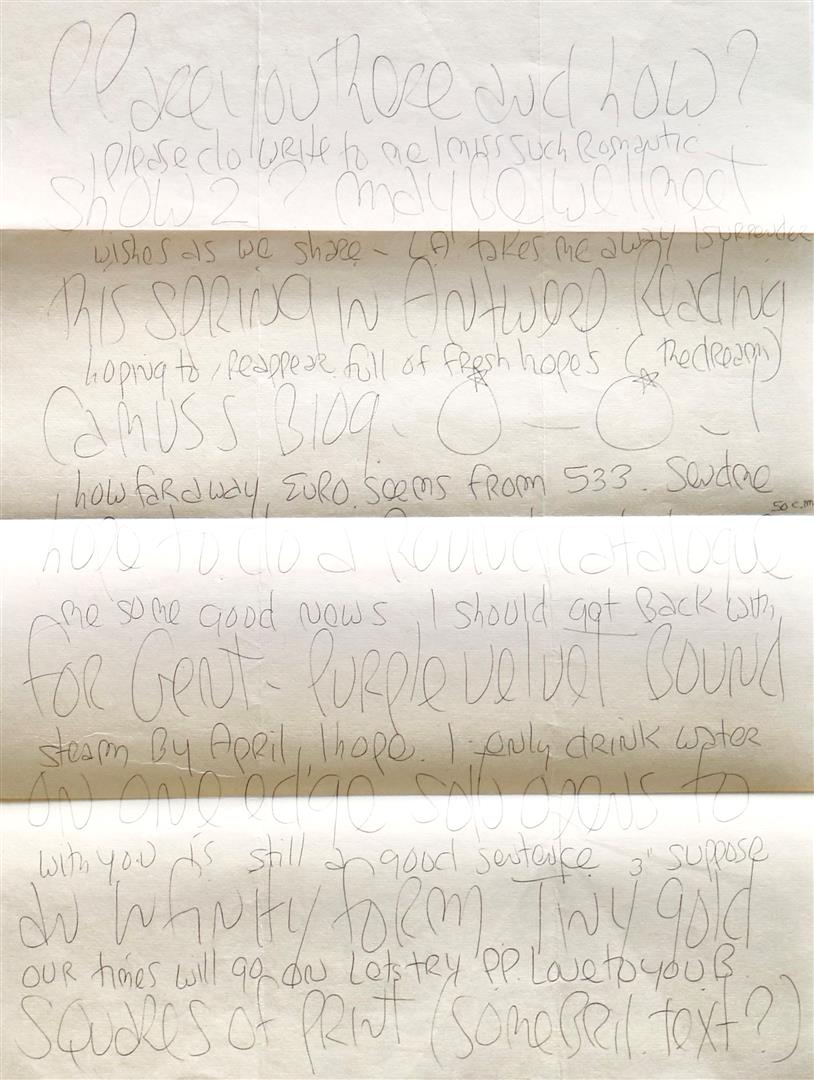 PP are you there and how?
please do write to me I miss such Romantic
show 2? maybe we'll meet
wishes as we share - LA takes me away I surrender
this spring in Antwerp Reading
hoping to, reappear full of fresh hopes (the dream)
Camuss Blog - -
how far away EURO. seems from 533. Send me
50 c.m
hope to do a Round catalogue
me some good news, I should get Back with
for Gent - Purple velvet Bound
steam By April, I hope. I only drink water
on one edge so it opens to
with you is still a good sentence 3" suppose
an infinity form Tiny gold
our times will go on Lets try PP. Love to you B
squares of print (some Bril. text?)